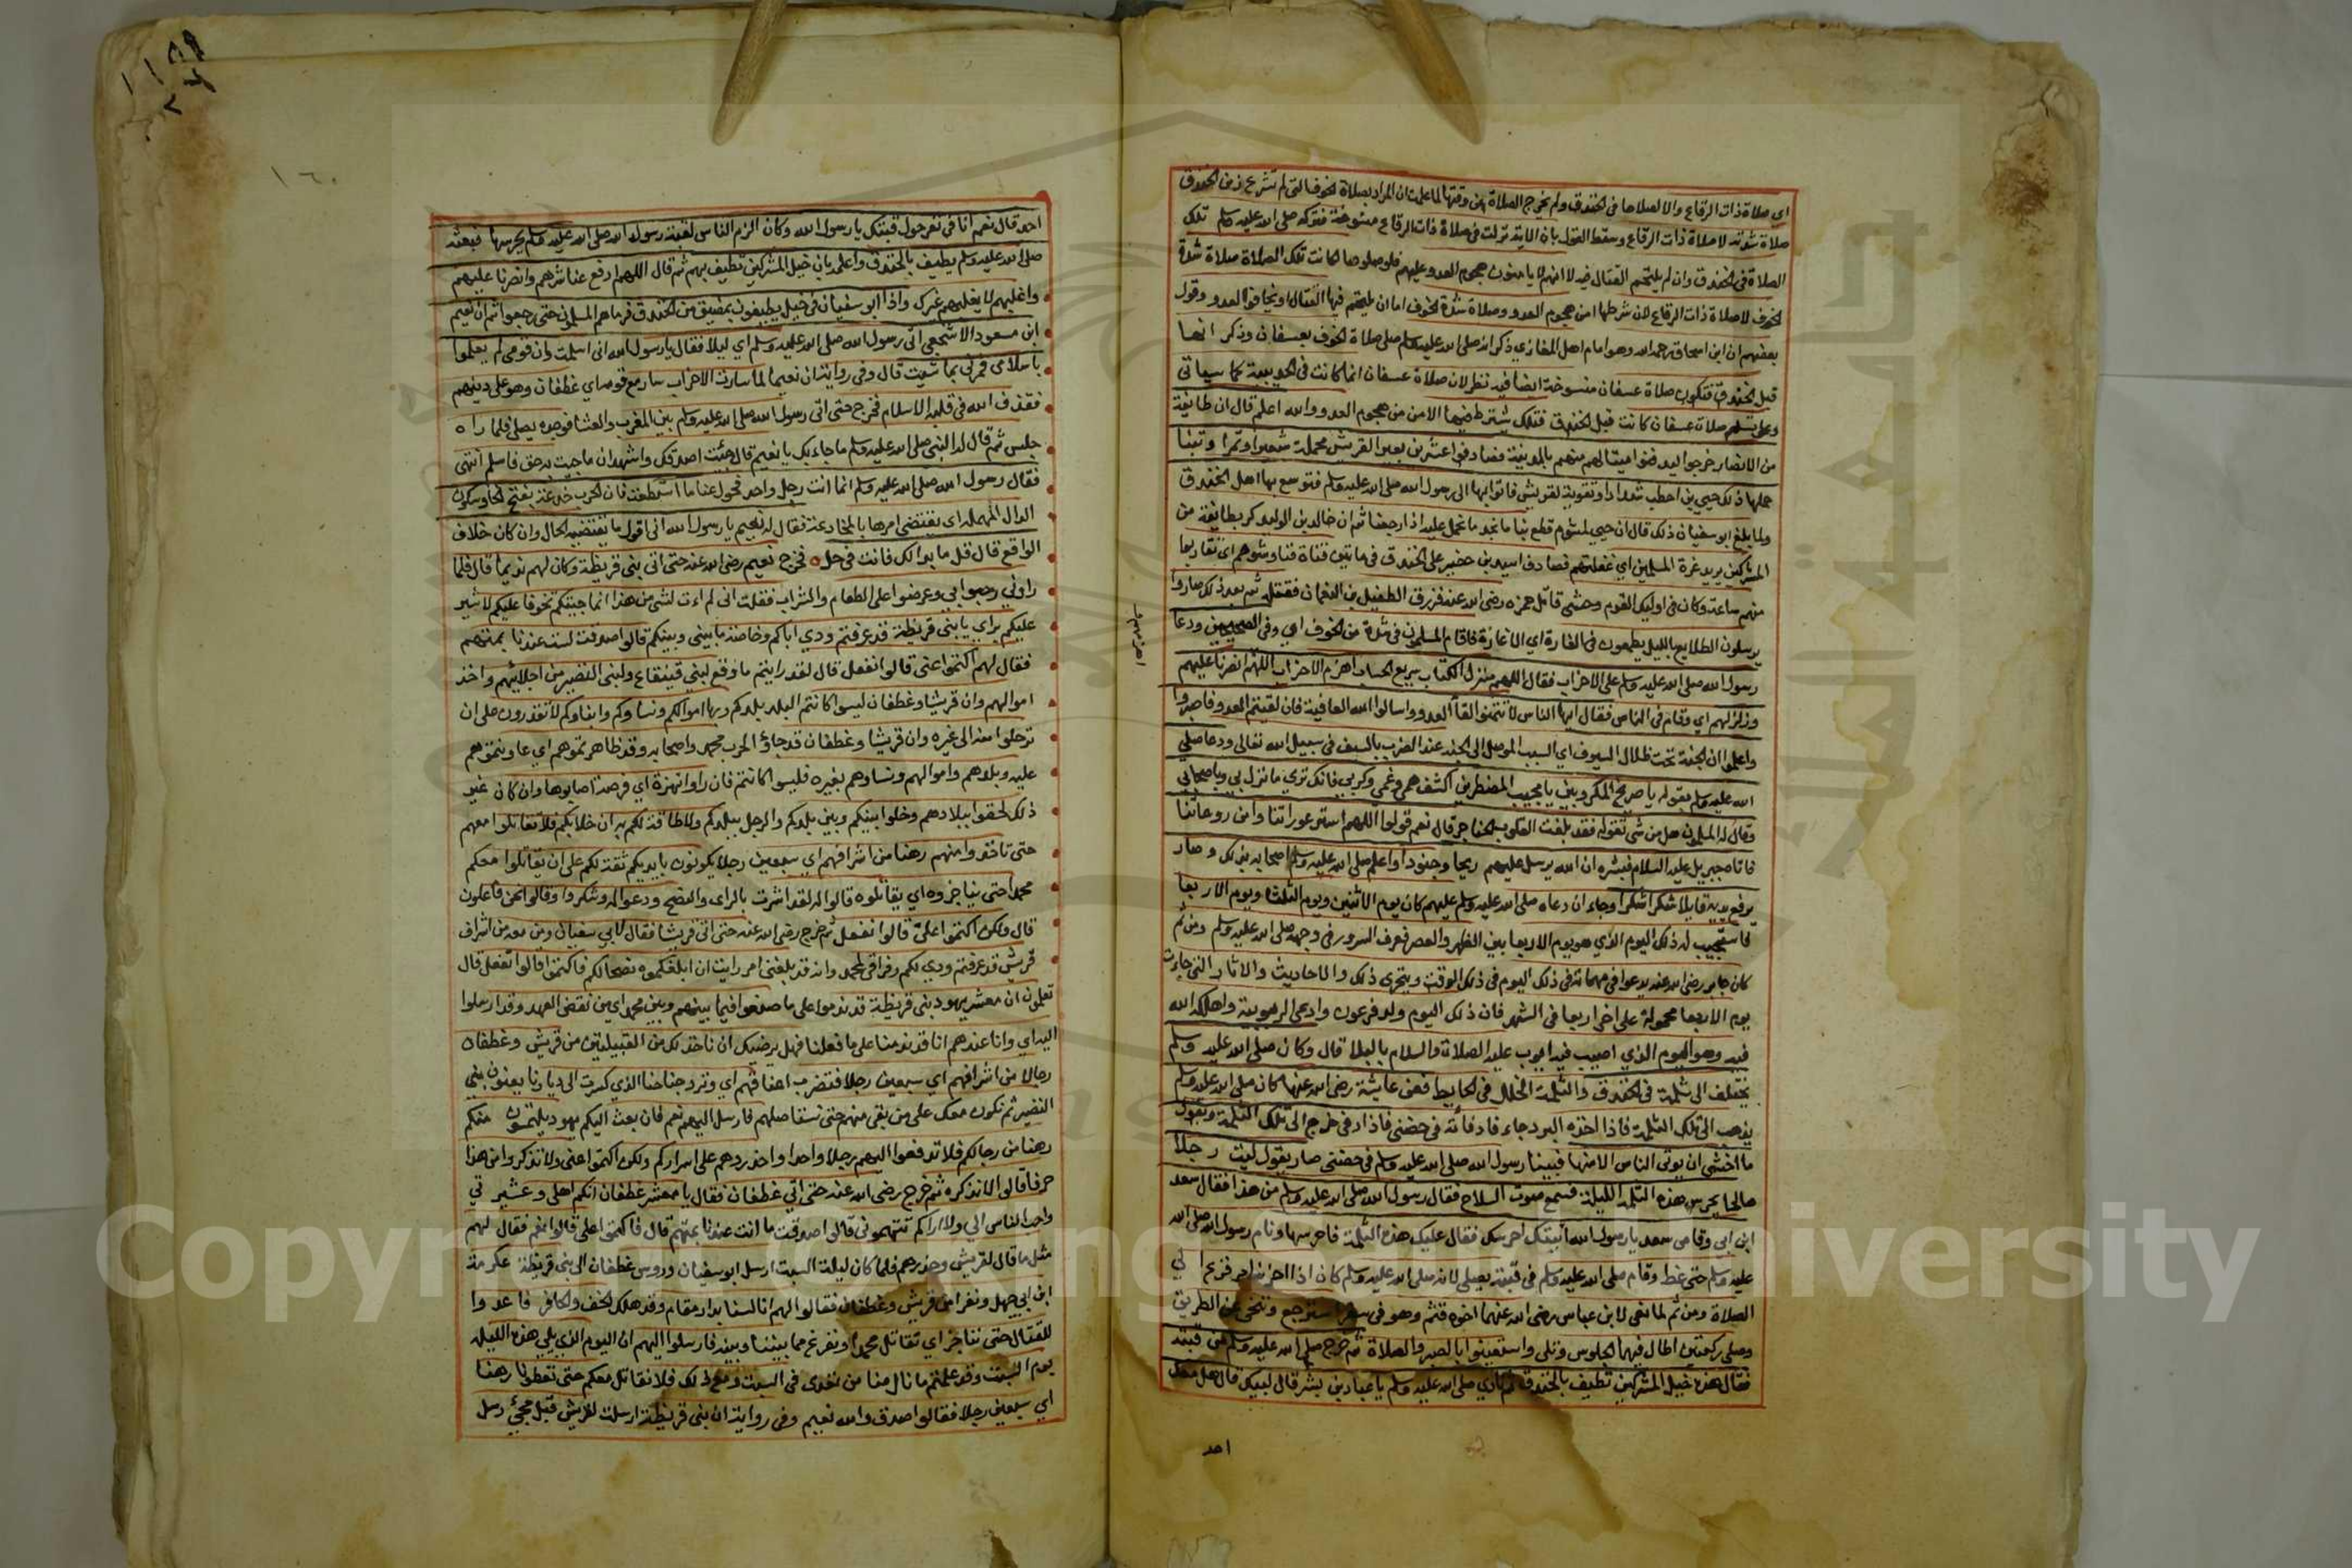 اي صلاة ذات الرقاع والا لصلاها في الخندق ولم يخرج الصلاة عن وقتها لما علمت ان المراد بصلاة الخوف التي لم تشرع زمن الخندق
صلاة شدته لا صلاة ذات الرقاع وسقط القول بان الاية نزلت في صلاة ذات الرقاع منسوخة فتركه صلى الله عليه وسلم تلك
الصلاة في الخندق وان لم يلتحم القتال فيه لا انهم لا يامنون هجوم العدو عليهم فلو صلوها لكانت تلك الصلاة صلاة شدة
الخوف لا صلاة ذات الرقاع لان شرطها امن هجوم العدو وصلاة شدة الخوف اما ان يلتحم فيها القتال او يخافوا العدو وقول
بعضهم ان ابن اسحاق رحمه الله وهو امام اهل المغازي ذكر انه صلى الله عليه وسلم صلى صلاة الخوف بعسفان وذكر انها
قبل الخندق فتكون صلاة عسفان منسوخة ايضا فيه نظر لان صلاة عسفان انما كانت في الحديبية كما سياتي
وعلى تسليم صلاة عسفان كانت قبل الخندق فتلك يشترط فيها الامن من هجوم العدو والله اعلم قال ان طائفة
من الانصار خرجوا ليدفنوا ميتا لهم منهم بالمدينة فصادفوا عشرين بعيرا لقريش محملة شعيرا وتمرا وتبنا
حملها ذلك حيي بن اخطب شدادا وتقوية لقريش فاتوا بها الى رسول الله صلى الله عليه وسلم فتوسع بها اهل الخندق
ولما بلغ ابو سفيان ذلك قال ان حيي لمشوم قطع بنا ما نجد ما نحمل عليه اذا رجعنا ثم ان خالد بن الوليد كر بطائفة من
المشركين يريد غرة المسلمين اي غفلتهم فصادف اسيد بن حضير على الخندق في مائتين فناوشوهم اي تقاربوا
منهم ساعة وكان في اوليك القوم وحشي قاتل حمزة رضي الله عنه فزرق الطفيل بن النعمان فقتله ثم بعد ذلك صاروا
يرسلون الطلايع بالليل يطمعون في الغارة اي الاغارة فاقام المسلمون في شدة من الخوف اي وفي الصحيحين ودعا
رسول الله صلى الله عليه وسلم على الاحزاب فقال اللهم منزل الكتاب سريع الحساب اهزم الاحزاب اللهم انصرنا عليهم
وزلزلهم اي وقام في الناس فقال ايها الناس لا تتمنوا لقا العدو واسالوا الله العافية فان لقيتم العدو فاصبروا
واعلموا ان الجنة تحت ظلال السيوف اي السبب الموصل الى الجنة عند الضرب بالسيف في سبيل الله تعالى ودعا صلى
الله عليه وسلم بقوله يا صريخ المكروبين يا مجيب المضطرين اكشف همي وغمي وكربي فانك ترى ما نزل بي وباصحابي
وقال له المسلمون هل من شي نقوله فقد بلغت القلوب الحناجر قال نعم قولوا اللهم استر عوراتنا وامن روعاتنا
فاتاه جبريل عليه السلام فبشره ان الله يرسل عليهم ريحا وجنودا واعلم صلى الله عليه وسلم اصحابه بذلك وصار
يرفع يديه قايلا شكرا شكرا وجاء ان دعاه صلى الله عليه وسلم عليهم كان يوم الاثنين ويوم الثلثا ويوم الاربعا
فاستجيب له ذلك اليوم الذي هو يوم الاربعا بين الظهر والعصر فعرف السرور في وجهه صلى الله عليه وسلم ومن ثم
كان جابر رضي الله عنه يدعوا في مهماته في ذلك اليوم في ذلك الوقت ويتحرى ذلك والاحاديث والاثار التي جاءت
يوم الاربعا محمولة على اخر اربعا في الشهر فان ذلك اليوم ولد فرعون وادعى الربوبية واهلكه الله
فيه وهو اليوم الذي اصيب فيه ايوب عليه الصلاة والسلام بالبلاء قال وكان صلى الله عليه وسلم
يختلف الى ثلمة في الخندق والثلمة الخلل في الحايط فعن عايشة رضي الله عنها كان صلى الله عليه وسلم
يذهب الى تلك الثلمة فاذا اخذه البرد جاء فادفأته في حضني فاذا دفي خرج الى تلك الثلمة ويقول
ما اخشى ان يوتى الناس الا منها فبينا رسول الله صلى الله عليه وسلم في حضني صار يقول ليت رجلا
صالحا يحرس هذه الثلمة الليلة فسمع صوت السلاح فقال رسول الله صلى الله عليه وسلم من هذا فقال سعد
ابن ابي وقاص سعد يا رسول الله اتيتك احرسك فقال عليك هذه الثلمة فاحرسها ونام رسول الله صلى الله
عليه وسلم حتى غط وقام صلى الله عليه وسلم في قبته يصلي لانه صلى الله عليه وسلم كان اذا احزنه امر فزع الى
الصلاة ومن ثم لما نعي لابن عباس رضي الله عنهما اخوه قثم وهو في سفر استرجع وتنحى عن الطريق
وصلى ركعتين اطال فيهما الجلوس وتلى واستعينوا بالصبر والصلاة ثم خرج صلى الله عليه وسلم من قبته
فقال هذه خيل المشركين تطيف بالخندق ثم نادى صلى الله عليه وسلم يا عباد بن بشر قال لبيك قال هل معك
احد
١٦٠
احد قال نعم انا في نفر حول قبتك يا رسول الله وكان الزم الناس لقبة رسول الله صلى الله عليه وسلم يحرسها فبعثه
صلى الله عليه وسلم يطيف بالخندق واعلمه بان خيل المشركين تطيف بهم ثم قال اللهم ادفع عنا شرهم وانصرنا عليهم
واغلبهم لا يغلبهم غيرك واذا ابو سفيان في خيل يطيفون بمضيق من الخندق فرماهم المسلمون حتى رجعوا ثم ان نعيم
ابن مسعود الاشجعي اتى رسول الله صلى الله عليه وسلم اي ليلا فقال يا رسول الله اني اسلمت وان قومي لم يعلموا
باسلامي فمرني بما شيت قال وفي رواية ان نعيما لما سارت الاحزاب سار مع قومه اي غطفان وهو على دينهم
فقذف الله في قلبه الاسلام فخرج حتى اتى رسول الله صلى الله عليه وسلم بين المغرب والعشا فوجده يصلي فلما راه
جلس ثم قال له النبي صلى الله عليه وسلم ما جاء بك يا نعيم قال جئت اصدقك واشهد ان ما جيت به حق فاسلم انتهى
فقال رسول الله صلى الله عليه وسلم انما انت رجل واحد فخول عنا ما استطعت فان الحرب خدعة بفتح الخا وسكون
الدال المهملة اي ينقضي امرها بالمخادعة فقال له نعيم يا رسول الله اني اقول ما يقتضيه الحال وان كان خلاف
الواقع قال قل ما بدا لك فانت في حل فخرج نعيم رضي الله عنه حتى اتى بني قريظة وكان لهم نديما قال فلما
راوني رحبوا بي وعرضوا علي الطعام والشراب فقلت اني لم ات لشي من هذا انما جيتكم تخوفا عليكم لاشير
عليكم براي يا بني قريظة قد عرفتم ودي اياكم وخاصة ما بيني وبينكم قالوا صدقت لست عندنا بمتهم
فقال لهم اكتموا عني قالوا نفعل قال لقد رايتم ما وقع لبني قينقاع ولبني النضير من اجلائهم واخذ
اموالهم وان قريشا وغطفان ليسوا كانتم البلد بلدكم وبها اموالكم ونساوكم وابناوكم لا تقدرون على ان
ترحلوا منه الى غيره وان قريشا وغطفان قد جاؤ لحرب محمد واصحابه وقد ظاهرتموهم اي عاونتموهم
عليه وبلدهم واموالهم ونساوهم بغيره فليسوا كانتم فان راوا نهزة اي فرصة اصابوها وان كان غير
ذلك لحقوا ببلادهم وخلوا بينكم وبين بلدكم والرجل ببلدكم ولا طاقة لكم به ان خلا بكم فلا تقاتلوا معهم
حتى تاخذوا منهم رهنا من اشرافهم اي سبعين رجلا يكونون بايديكم ثقة لكم على ان يقاتلوا معكم
محمدا حتى يناجزوه اي يقاتلوه قالوا له لقد اشرت بالراي والنصح ودعوا له وشكروا وقالوا نحن فاعلون
قال ولكن اكتموا علي قالوا نفعل ثم خرج رضي الله عنه حتى اتى قريشا فقال لابي سفيان ومن معه من اشراف
قريش قد عرفتم ودي لكم وفراقي لمحمد وانه قد بلغني امر رايت ان ابلغكموه نصحا لكم فاكتموا قالوا نفعل قال
تعلمون ان معشر يهود بني قريظة قد ندموا على ما صنعوا فيما بينهم وبين محمد اي من نقض العهد وقد ارسلوا
اليه اي وانا عندهم انا قد ندمنا على ما فعلنا فهل يرضيك ان ناخذ لك من القبيلتين من قريش وغطفان
رجالا من اشرافهم اي سبعين رجلا فتضرب اعناقهم اي وترد جناحنا الذي كسرت الى ديارنا يعنون بني
النضير ثم نكون معك على من بقي منهم حتى نستاصلهم فارسل اليهم نعم فان بعث اليكم يهود يلتمسون منكم
رهنا من رجالكم فلا تدفعوا اليهم رجلا واحدا واحذروهم على اسراركم ولكن اكتموا عني ولا تذكروا من هذا
حرفا قالوا لا نذكره ثم خرج رضي الله عنه حتى اتى غطفان فقال يا معشر غطفان انكم اهلي وعشيرتي
واحب الناس الي ولا اراكم تتهموني قالوا صدقت ما انت عندنا بمتهم قال فاكتموا علي قالوا نعم فقال لهم
مثل ما قال لقريش وحذرهم فلما كان ليلة السبت ارسل ابو سفيان وروس غطفان الى بني قريظة عكرمة
ابن ابي جهل ونفرا من قريش وغطفان فقالوا لهم انا لسنا بدار مقام وقد هلك الخف والحافر فاغدوا
للقتال حتى نناجز اي نقاتل محمدا ونفرغ مما بيننا وبينه فارسلوا اليهم ان اليوم الذي يلي هذه الليلة
يوم السبت وقد علمتم ما نال منا من تعدى في السبت ومع ذلك فلا نقاتل معكم حتى تعطونا رهنا
اي سبعين رجلا فقالوا صدق والله نعيم وفي رواية ان بني قريظة ارسلت لقريش قبل مجيء رسل
Copyright © King Saud University